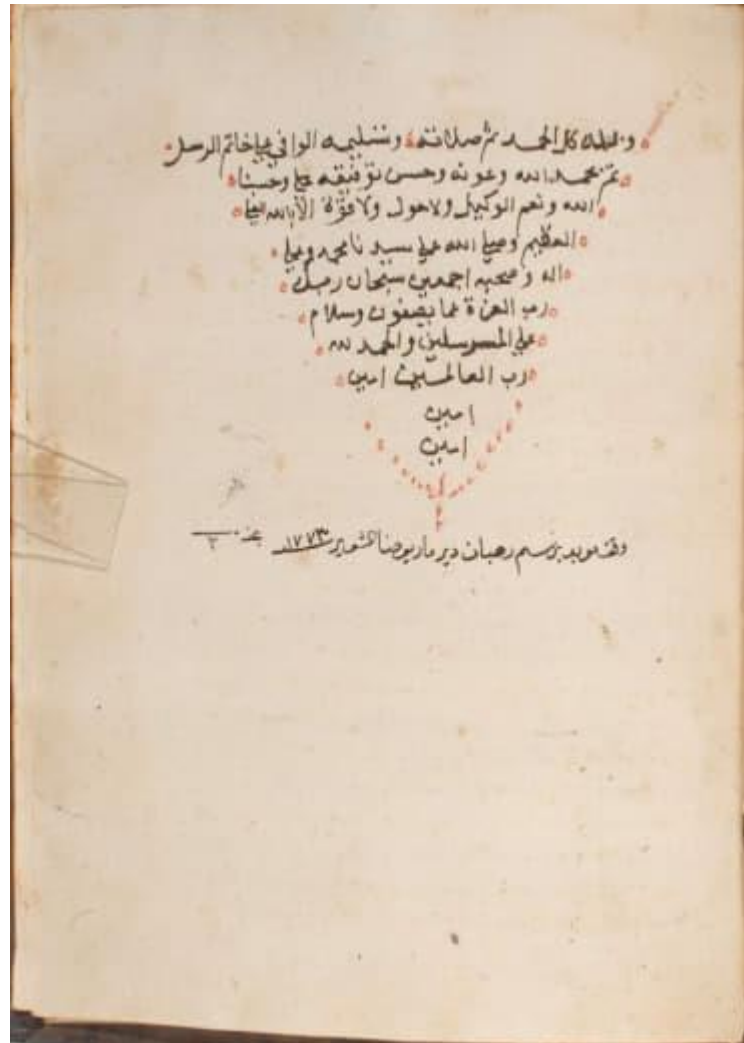 ولله كل الحمد ثم صلاته وتسليمه الوافي علي خاتم الرسل
تم بحمد الله وعونه وحسن توفيقه وحسبنا
الله ونعم الوكيل ولاحول ولاقوة الا بالله العلي
العظيم وصلي الله علي سيدنا محمد وعلي
اله وصحبه اجمعين سبحان ربك
رب العزة عما يصفون وسلام
علي المرسلين والحمد لله
رب العالمين امين
امين
امين
وقف موبد برسم رهبان دير مار يوحنا الشوير ١٧٧٣